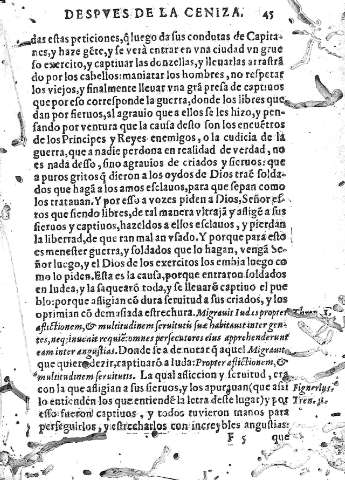 DESPVES DE LA CENIZA. 45
das estas peticiones, q̃ luego da sus condutas de Capita-
nes, y haze gẽte, y se verà entrar en vna ciudad vn grue
so exercito, y captiuar las donzellas, y lleuarlas arrastrã
do por los cabellos: maniatar los hombres, no respetar
los viejos, y finalmente lleuar vna grã presa de captiuos
que por eso corresponde la guerra, donde los libres que
dan por sieruos, al agrauio que a ellos se les hizo, y pen-
sando por ventura que la causa desto son los encuẽtros
de los Principes y Reyes enemigos, o la cudicia de la
guerra, que a nadie perdona en realidad de verdad, no
es nada desso, sino agrauios de criados y sieruos: que
a puros gritos q̃ dieron a los oydos de Dios traẽ solda-
dos que hagã a los amos esclauos, para que sepan como
los tratauan. Y por esso a vozes piden a Dios, Señor es-
tos que siendo libres, de tal manera vltrajã y asligẽ a sus
sieruos y captiuos, hazeldos a ellos esclauos, y pierdan
la libertad, de que tan mal an vsado. Y porque para esto
es menester guerra, y soldados que lo hagan, vengã Se-
ñor luego, y el Dios de los exercitos los embia luego co
mo los piden. Esta es la causa, porque entraron soldados
en Iudea, y la saquearõ toda, y se lleuarõ captiuo el pue
blo: porque asligian cõ dura seruitud a sus criados, y los
oprimian cõ demasiada estrechura. Migrauit Iudas propter
aflictionem, & multitudinem seruitutis suæ habitauit inter gen-
tes, neq; inuenit requiẽ: omnes persecutores eius apprehenderunt
eam inter angustias. Donde se a de notar q̃ aquel Migrauit
que quiere dezir, captiuarõ a Iuda: Propter aflictionẽ, &
multitudinem seruitutis. La qual afliccion y seruitud, era
con la que asligian a sus sieruos, y los apurauan (que asi
lo entienden los que entiendẽ la letra deste lugar) y por
esso fueron captiuos, y todos tuvieron manos para
perseguirlos, y estrecharlos con increybles angustias:
Figueròus,
Tren. 1.
F 5 que